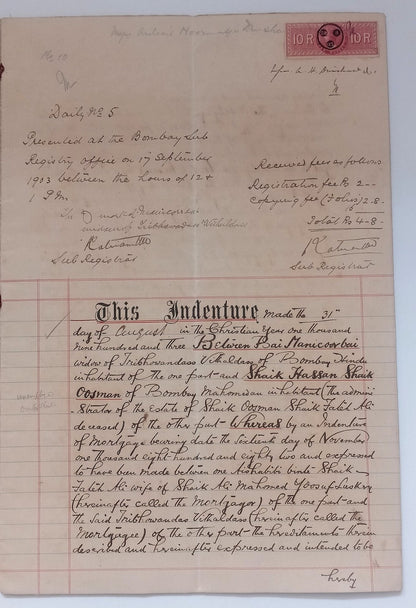 10 R 10 R
No 10
Daily No 5
Presented at the Bombay Sub
Registry office on 17 September
1903 between the hours of 12 &
1 P.M.
Received fees as follows
Registration fee Rs 2 --
Copying fee (Folios) 2.8.
Total Rs 4-8-
Sub Registrar
Sub Registrar
This Indenture made the 31st
day of August in the Christian Year one thousand
nine hundred and three Between Bai Manicoorbai
widow of Tribhovandass Vithaldass of Bombay Hindu
inhabitant of the one part and Shaik Hassan Shaik
Oosman of Bombay Mahomedan inhabitant (the admini
strator of the Estate of Shaik Oosman Shaik Fatek Ali
deceased) of the other part Whereas by an Indenture
of Mortgage bearing date the Sixteenth day of November
one thousand eight hundred and eighty two and expressed
to have been made between one Aishabibi binti Shaik
Fatek Ali wife of Shaik Ali Mahomed Yoosuf Laskery
(hereinafter called the Mortgagor) of the one part and
the said Tribhowandas Vithaldass (hereinafter called the
Mortgagee) of the other part the hereditaments therein
described and hereinafter expressed and intended to be
hereby